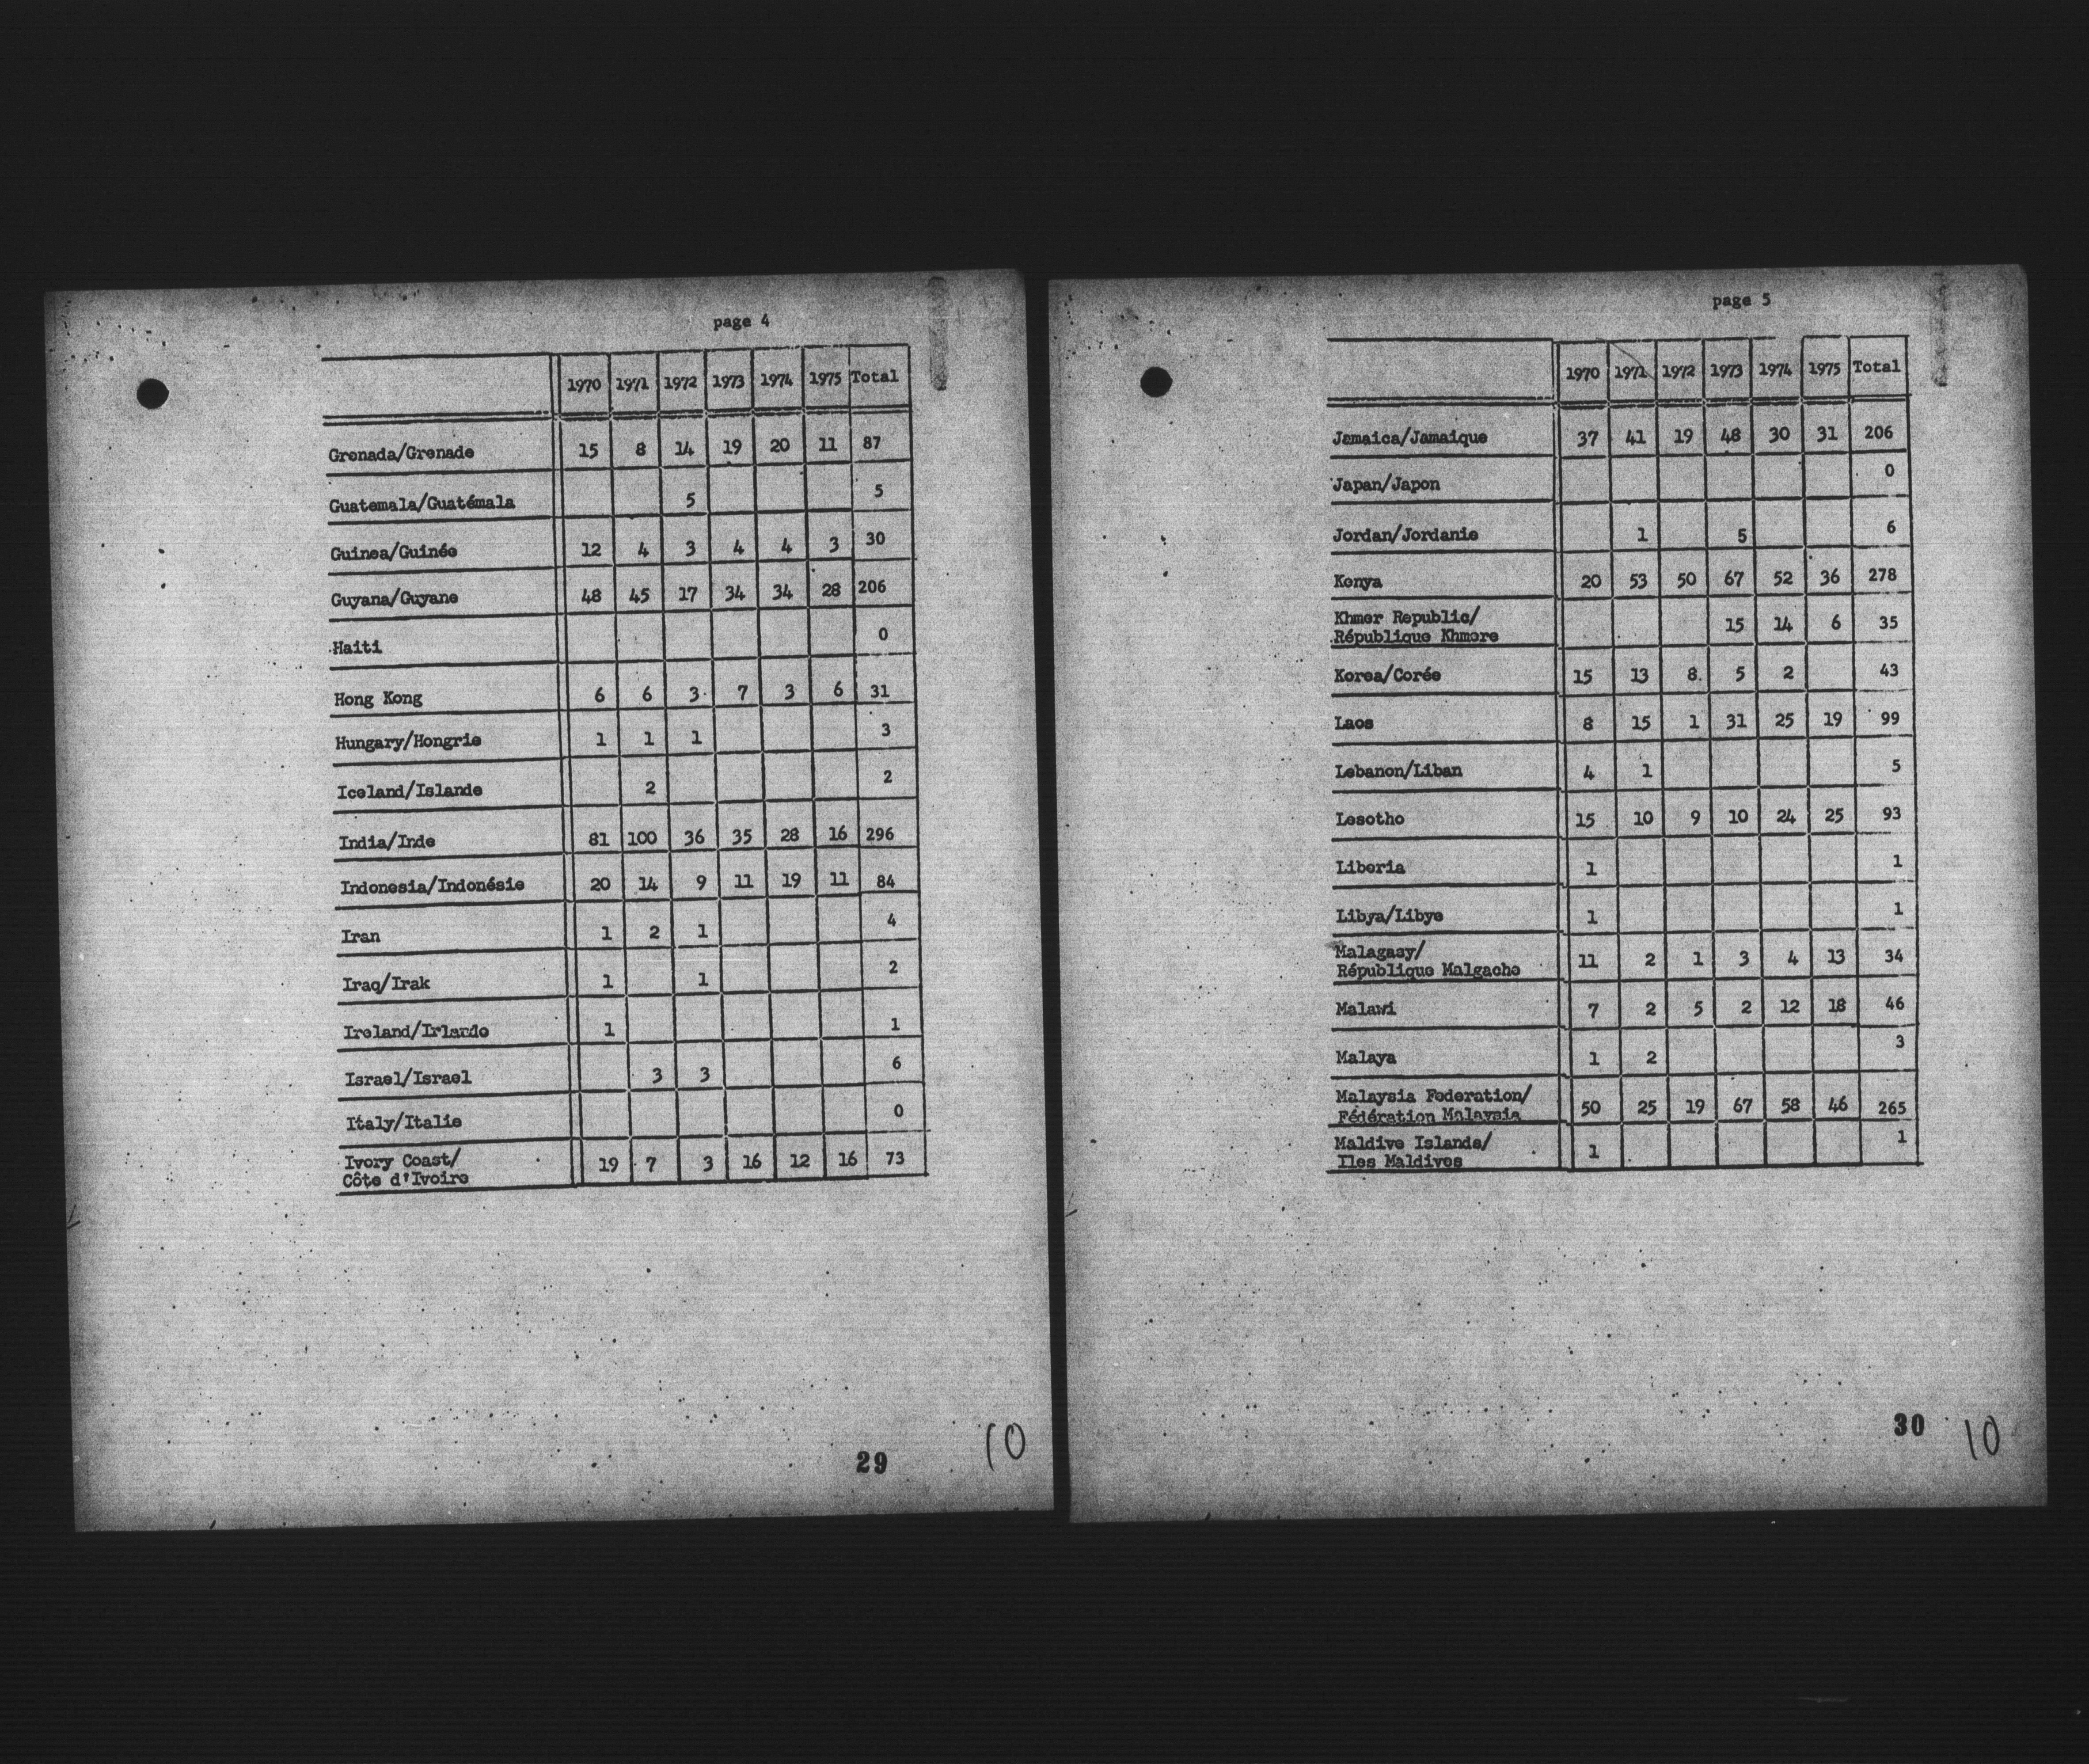 page 4
1970 1971 1972 1973 1974 1975 Total
Grenada/Grenade 15 8 14 19 20 11 87
Guatemala/Guatémala 5 5
Guinea/Guinée 12 4 3 4 4 3 30
Guyana/Guyane 48 45 17 34 34 28 206
Haiti 0
Hong Kong 6 6 3 7 3 6 31
Hungary/Hongrie 1 1 1 3
Iceland/Islande 2 2
India/Inde 81 100 36 35 28 16 296
Indonesia/Indonésie 20 14 9 11 19 11 84
Iran 1 2 1 4
Iraq/Irak 1 1 2
Ireland/Irlande 1 1
Israel/Israel 3 3 6
Italy/Italie 0
Ivory Coast/
Côte d'Ivoire 19 7 3 16 12 16 73
29
10
page 5
1970 1971 1972 1973 1974 1975 Total
Jamaica/Jamaique 37 41 19 48 30 31 206
Japan/Japon 0
Jordan/Jordanie 1 5 6
Kenya 20 53 50 67 52 36 278
Khmer Republic/
République Khmere 15 14 6 35
Korea/Corée 15 13 8 5 2 43
Laos 8 15 1 31 25 19 99
Lebanon/Liban 4 1 5
Lesotho 15 10 9 10 24 25 93
Liberia 1 1
Libya/Libye 1 1
Malagasy/
République Malgache 11 2 1 3 4 13 34
Malawi 7 2 5 2 12 18 46
Malaya 1 2 3
Malaysia Federation/
Fédération Malaysia 50 25 19 67 58 46 265
Maldive Islands/
Iles Maldives 1 1
30
10